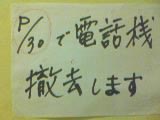 P/30で電話桟
撤去します